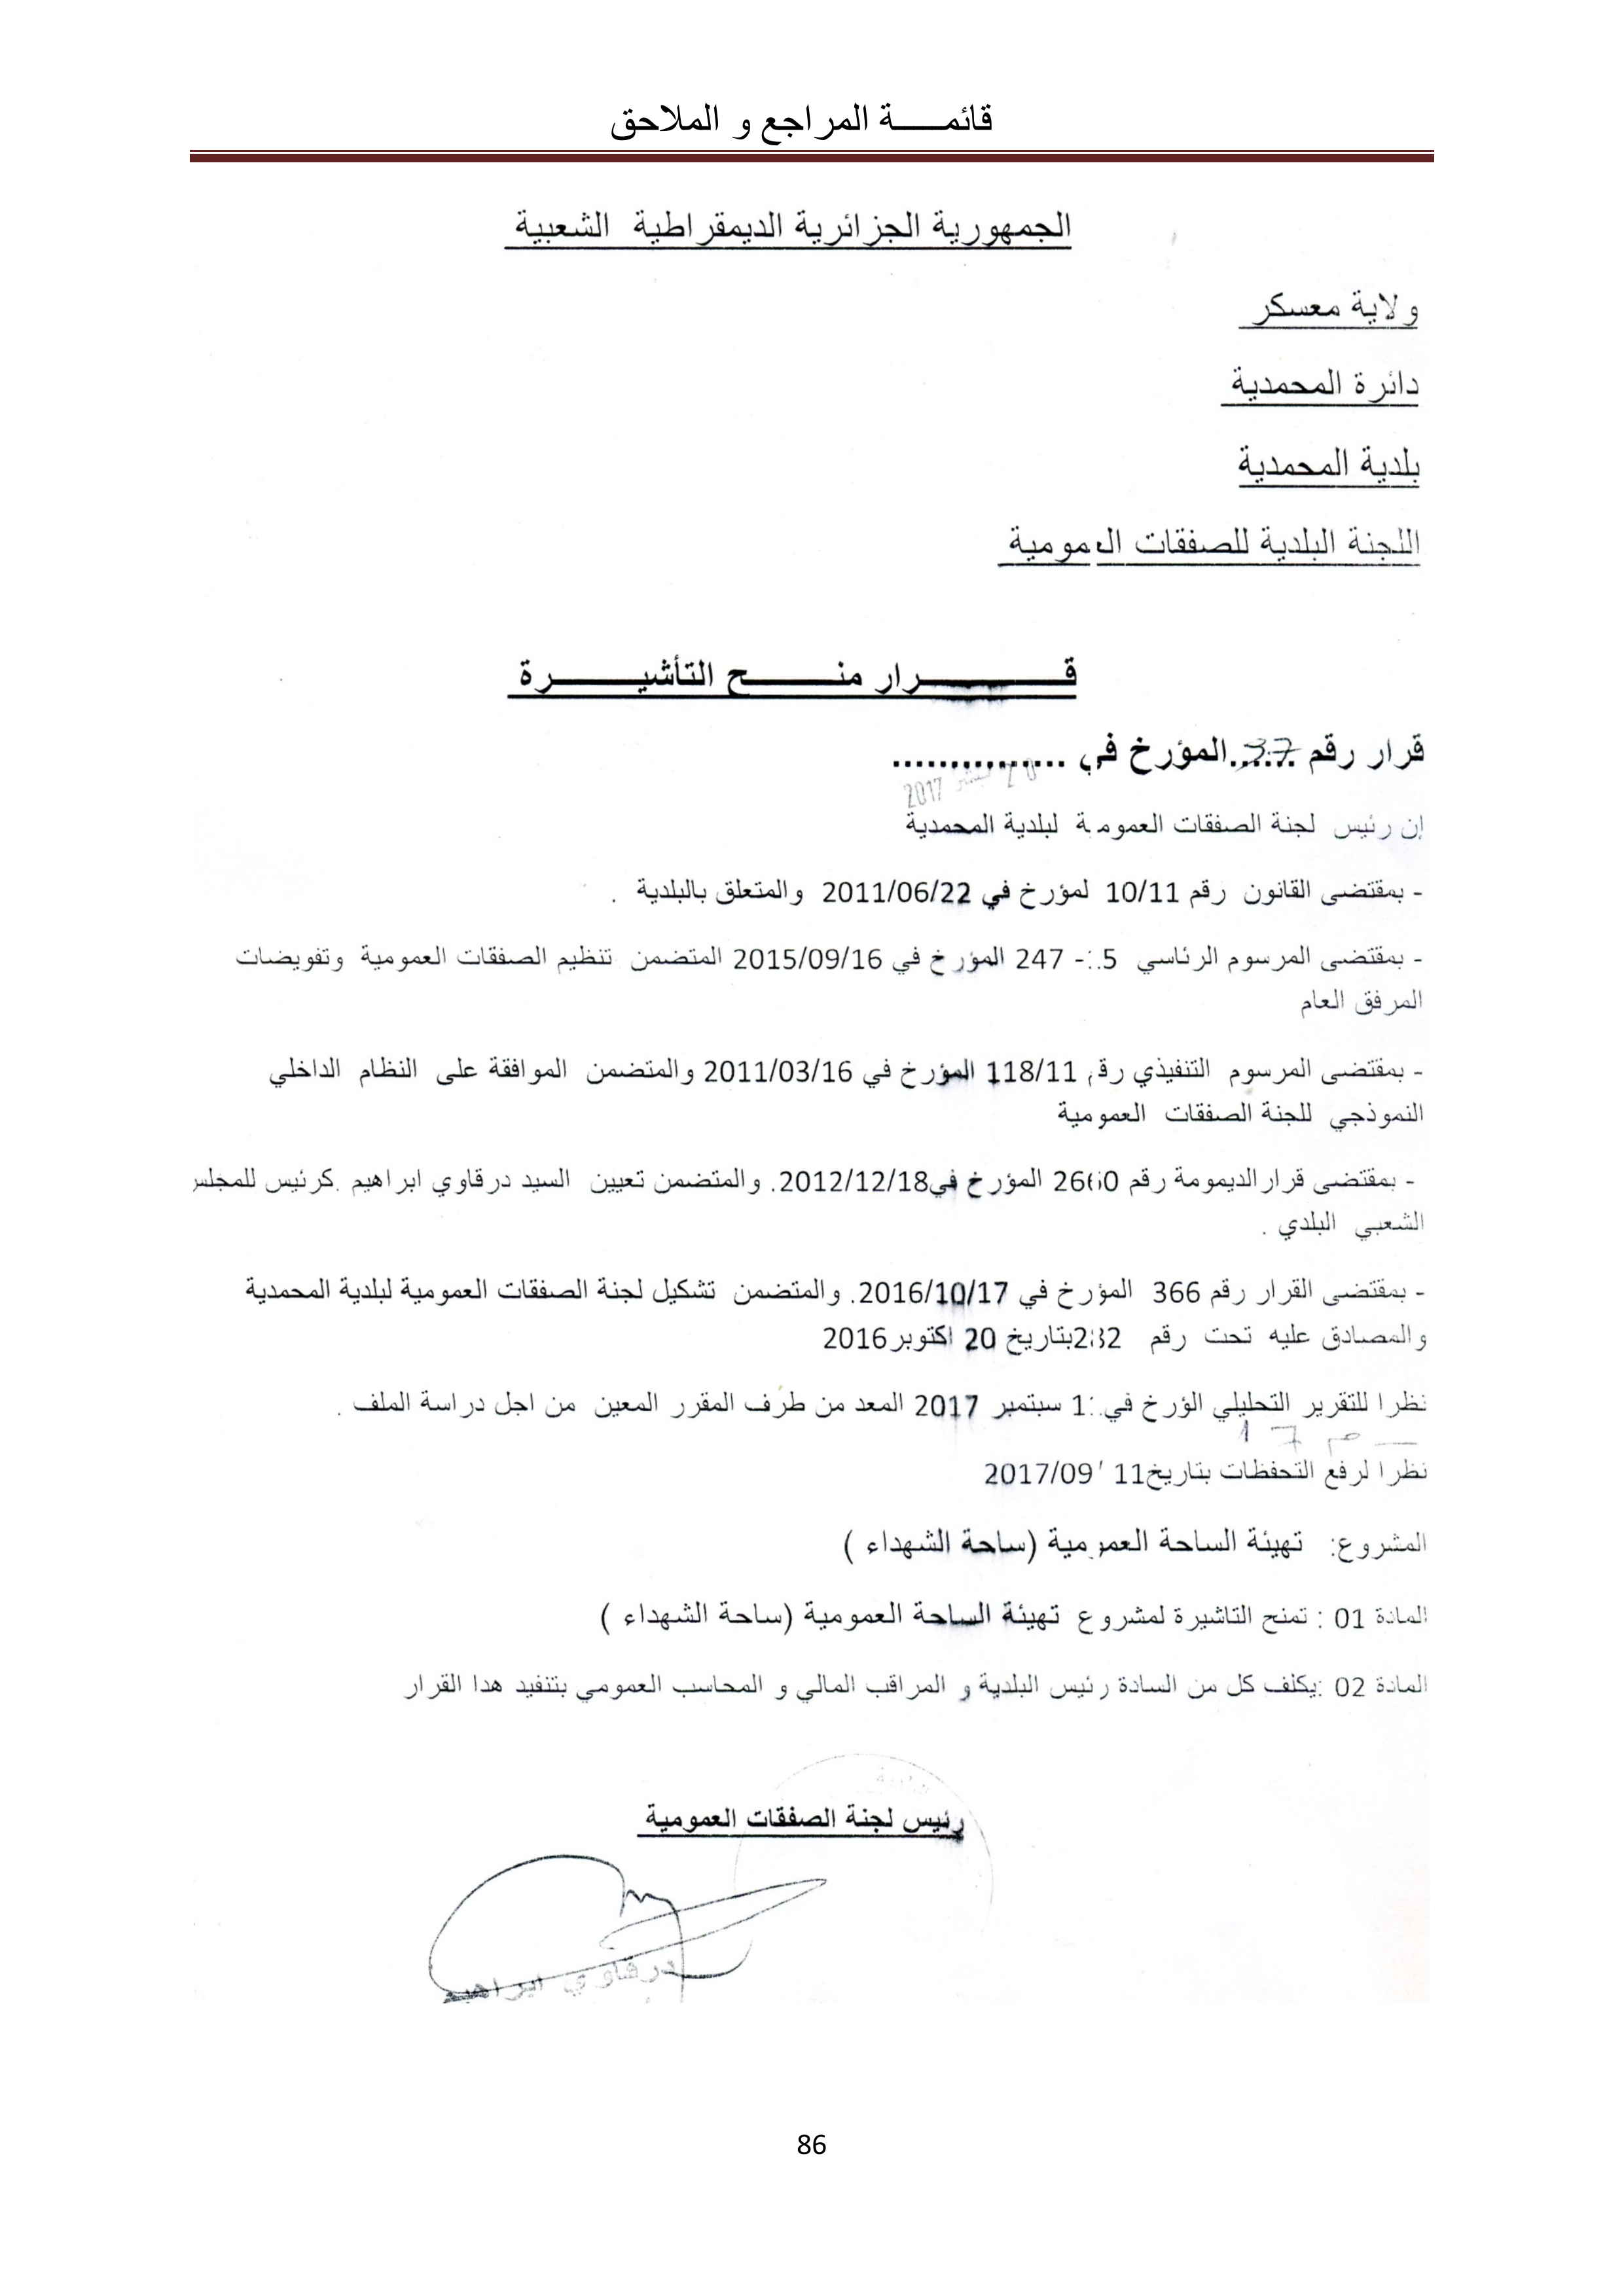 قائمـــــة المراجع و الملاحق
الجمهورية الجزائرية الديمقراطية الشعبية
ولاية معسكر
دائرة المحمدية
بلدية المحمدية
اللجنة البلدية للصفقات العمومية
قــــــــــرار منــــــــح التأشيــــــــــرة
قرار رقم 37 المؤرخ في ...............
2017
إن رئيس لجنة الصفقات العمومية لبلدية المحمدية
- بمقتضى القانون رقم 10/11 لمؤرخ في 2011/06/22 والمتعلق بالبلدية .
- بمقتضى المرسوم الرئاسي 15- 247 المؤرخ في 2015/09/16 المتضمن تنظيم الصفقات العمومية وتفويضات
المرفق العام
- بمقتضى المرسوم التنفيذي رقم 118/11 المؤرخ في 2011/03/16 والمتضمن الموافقة على النظام الداخلي
النموذجي للجنة الصفقات العمومية
- بمقتضى قرار الديمومة رقم 2660 المؤرخ في2012/12/18. والمتضمن تعيين السيد درقاوي ابراهيم .كرئيس للمجلس
الشعبي البلدي .
- بمقتضى القرار رقم 366 المؤرخ في 2016/10/17. والمتضمن تشكيل لجنة الصفقات العمومية لبلدية المحمدية
والمصادق عليه تحت رقم بتاريخ 20 اكتوبر2016
نظرا للتقرير التحليلي الؤرخ في سبتمبر 2017 المعد من طرف المقرر المعين من اجل دراسة الملف .
نظرا لرفع التحفظات بتاريخ11 /2017/09
المشروع: تهيئة الساحة العمومية (ساحة الشهداء )
المادة 01 : تمنح التاشيرة لمشروع تهيئة الساحة العمومية (ساحة الشهداء )
المادة 02 :يكلف كل من السادة رئيس البلدية و المراقب المالي و المحاسب العمومي بتنفيد هدا القرار
رئيس لجنة الصفقات العمومية
درقاوي ابراهيم
86